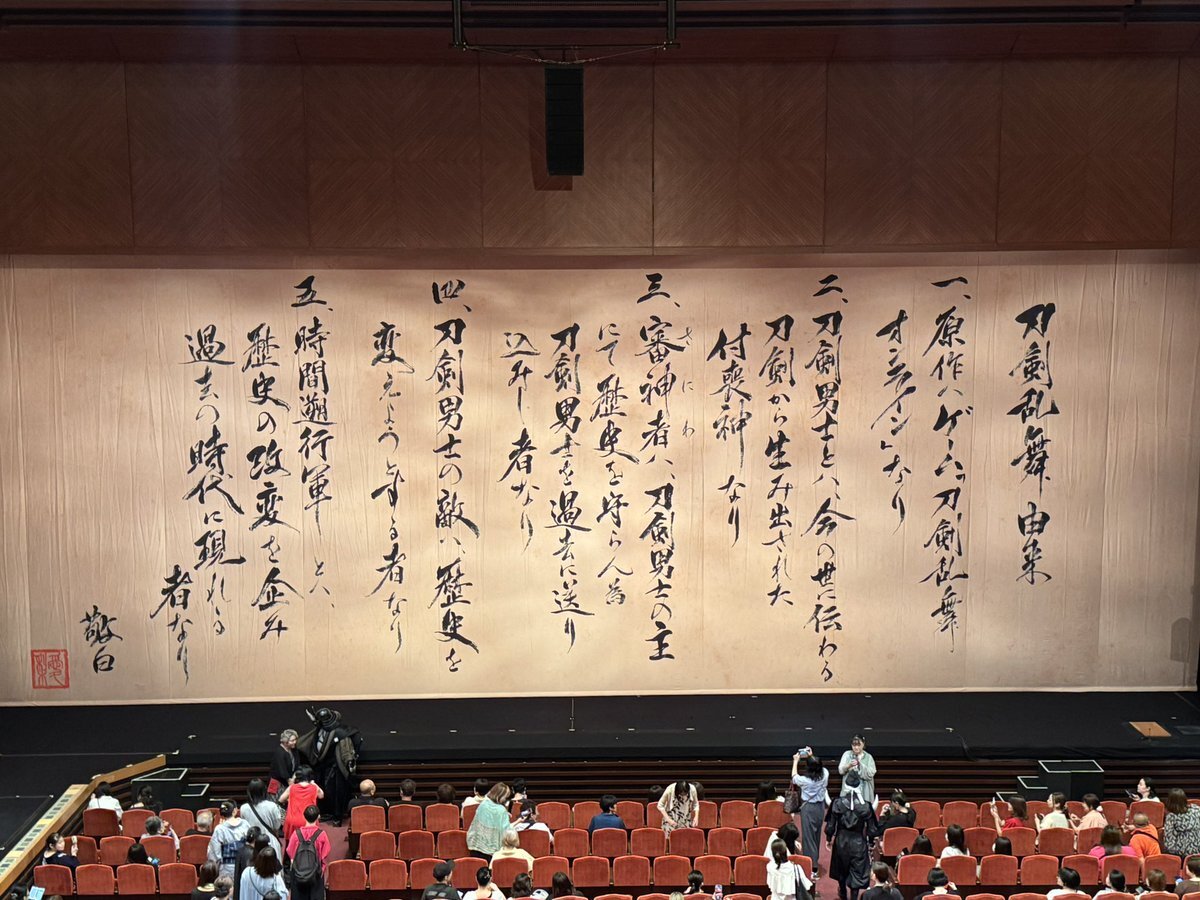 刀剣乱舞 由来
一、原作ハゲーム「刀剣乱舞
オンライン」なり
二、刀剣男士とハ、今の世に伝わる
刀剣から生み出された
付喪神なり
三、審神者ハ、刀剣男士の主
さにわ
にて歴史を守らん為
刀剣男士を過去に送り
込みし者なり
四、刀剣男士の敵ハ、歴史を
変えようとする者なり
五、時間遡行軍とハ、
歴史の改変を企み
過去の時代に現れる
者なり
敬白